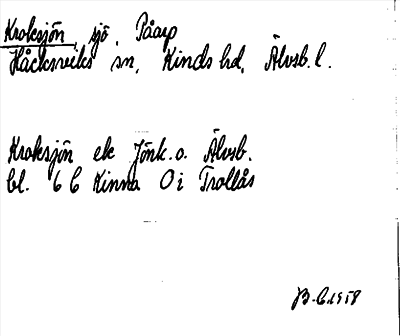 Kroksjön, sjö, Påarp
Håcksviks sn, Kinds hd, Älvsb. l.
Kroksjön ek Jönk. o. Älvsb.
bl. 6 C Kinna 0 i Trollås
1958